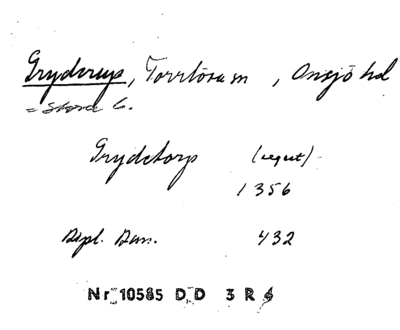 Gryderup, Torrlösa sn, Onsjö hd
= Stora G.
Grydetorp (regest)
1356
Dipl. Dan. 432
Nr 10585 D D 3 R 6